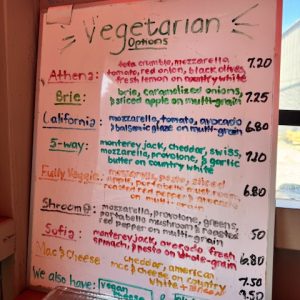 Vegetarian
Options
Athena: feta crumble, mozzarella, 7.20
tomato, red onion, black olives,
fresh lemon on country white
Brie: brie, caramelized onions,
& sliced apple on multi-grain 7.25
California: mozzarella, tomato, avocado
& balsamic glaze on multi-grain 6.80
5-way: monterey jack, cheddar, swiss,
mozzarella, provolone, & garlic 7.10
butter on country white
Fully Veggie: mozzarella, pesto, sliced
roasted red pepper
on multi-grain 6.80
Shroom: mozzarella, provolone, greens,
portabello mushroom & roasted
red pepper on multi-grain .50
Sofia: monterey jack, avocado, fresh
spinach, pesto on whole-grain 6.80
Mac & Cheese cheddar, american
mac & cheese on country 7.50
white + 9.50
We also have: vegan
cheese